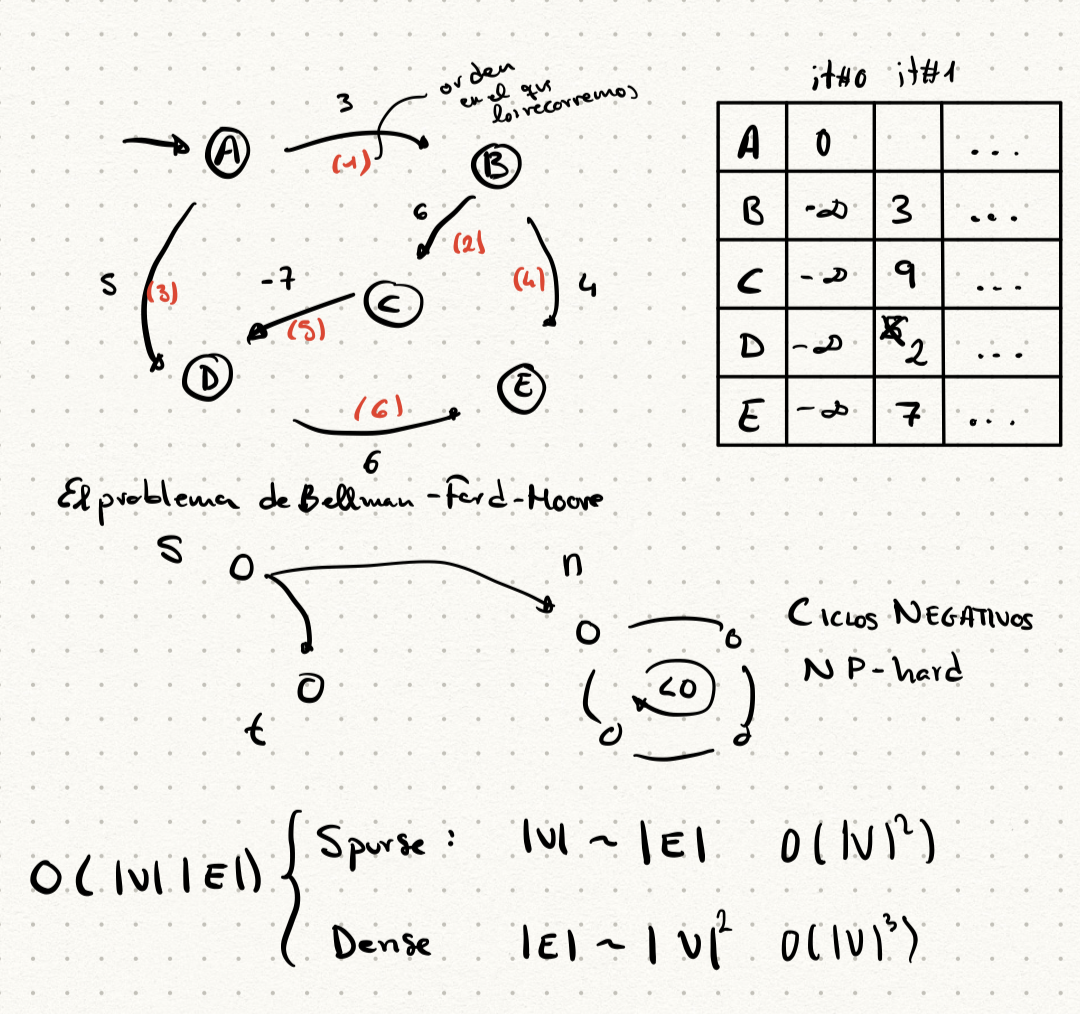 it#0 it#1
orden
en el que
los recorremos
3
(1)
A
B
6
(2)
5
(3)
-7
(4)
4
C
(5)
D
E
(6)
6
A 0 ...
B -∞ 3 ...
C -∞ 9 ...
D -∞ 2 ...
E -∞ 7 ...
El problema de Bellman-Ford-Moore
S
n
CICLOS NEGATIVOS
NP-hard
<0
t
O(|V||E|)
Sparse: |V| ~ |E| O(|V|²)
Dense |E| ~ |V|² O(|V|³)